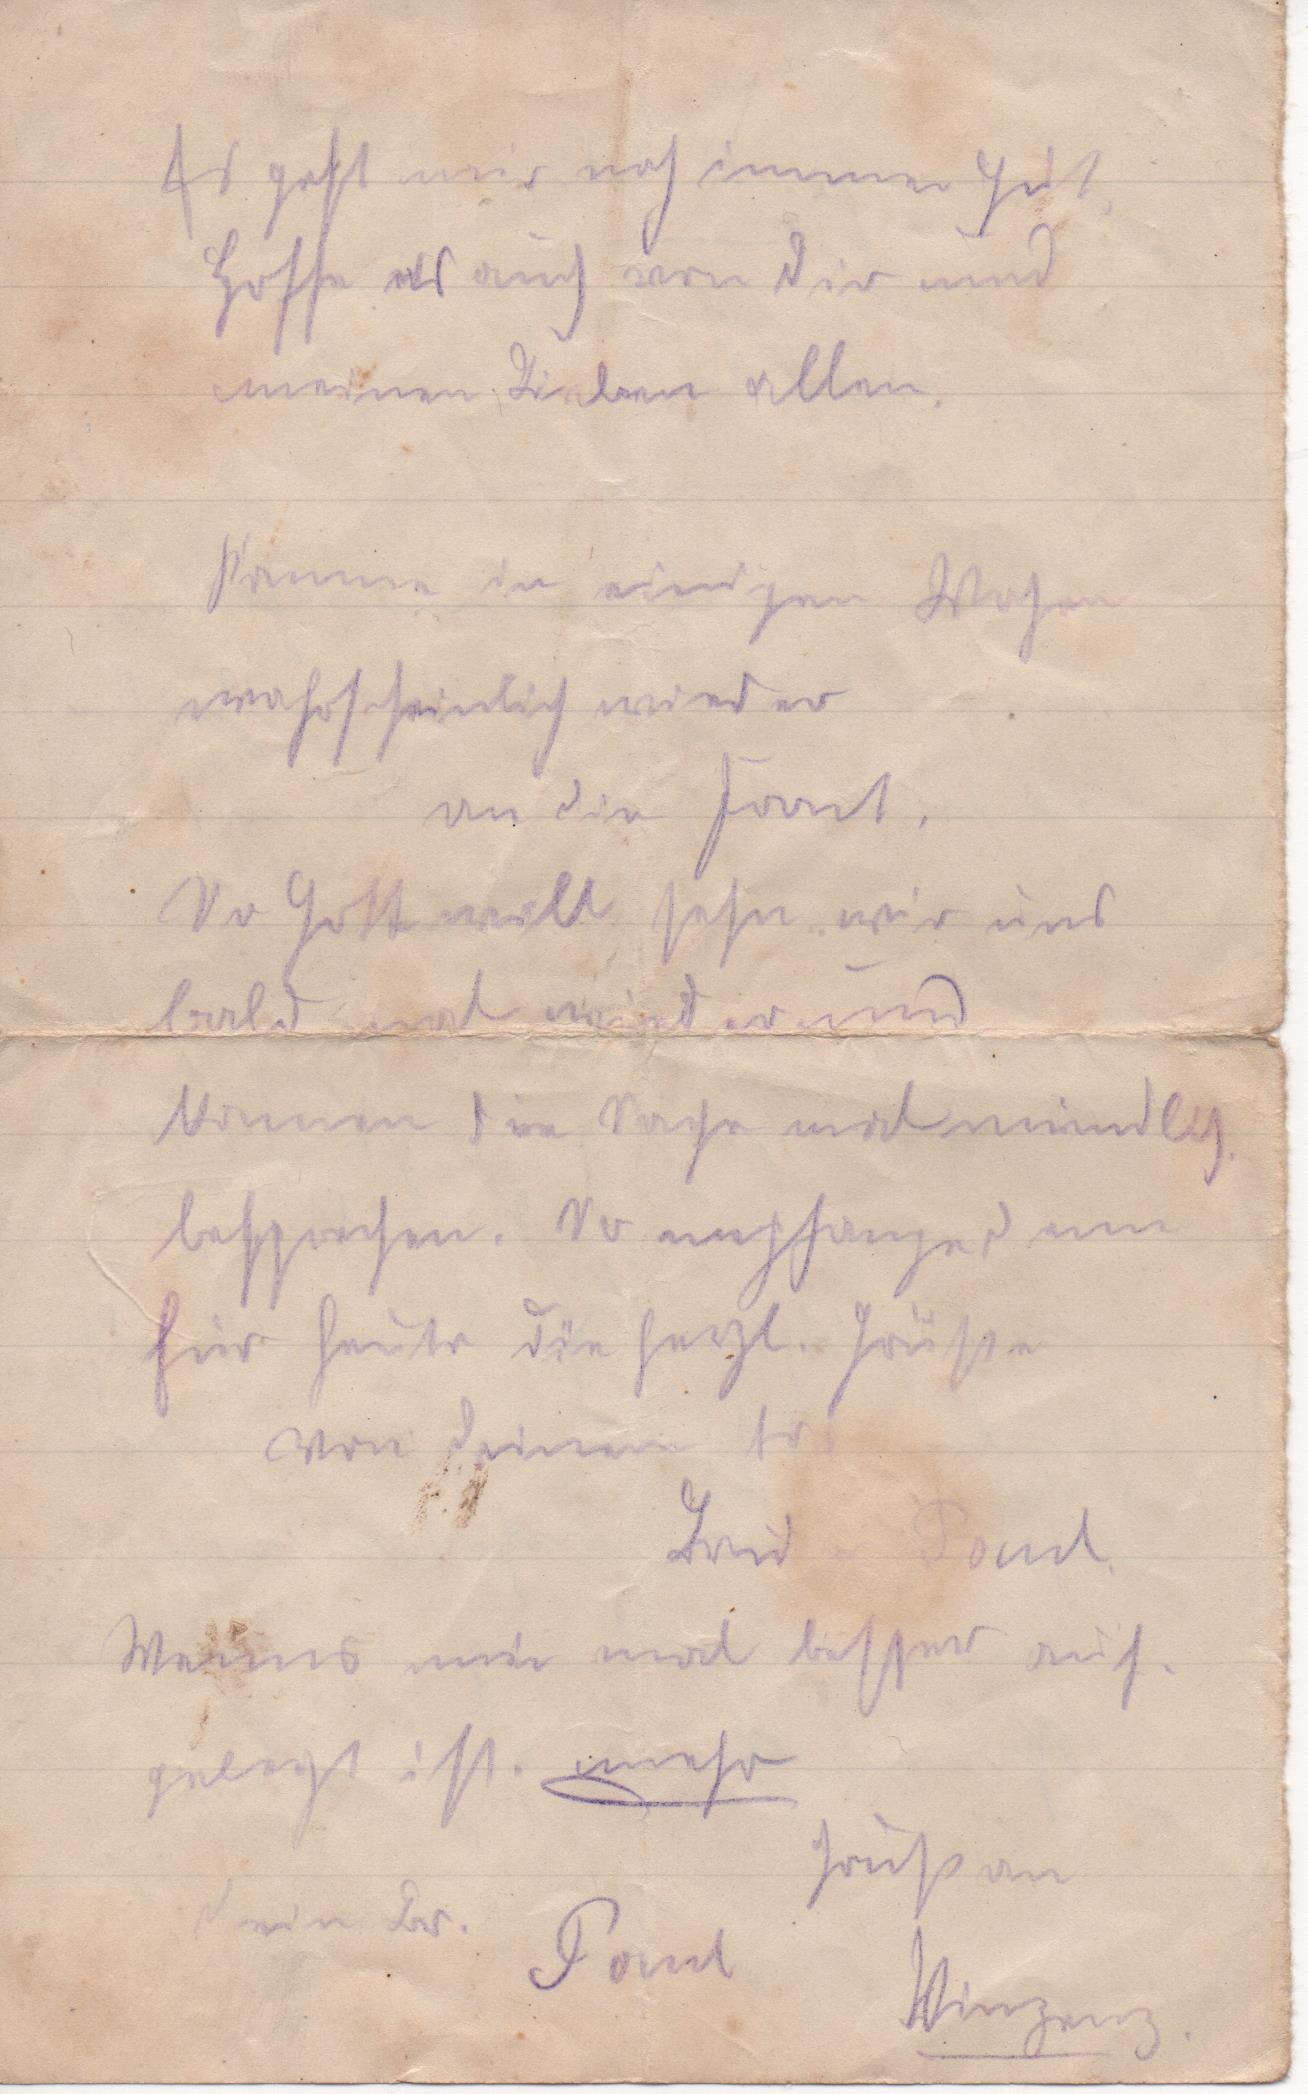 Es geht mir noch immer gut,
Hoffe es auch von Dir und
meinen Lieben allen.
Komme in einigen Wochen
wahrscheinlich wieder
an die Front.
So Gott will sehn wir uns
bald mal wieder und
können die Sache mal mündlch.
besprechen. So empfange denn
für heute die herzl. Grüße
von Deinem
Brud Paul.
Wenns mir mal besser auf-
gelegt ist. mehr
Gruß an
Dein Br. Paul
Winzenz.